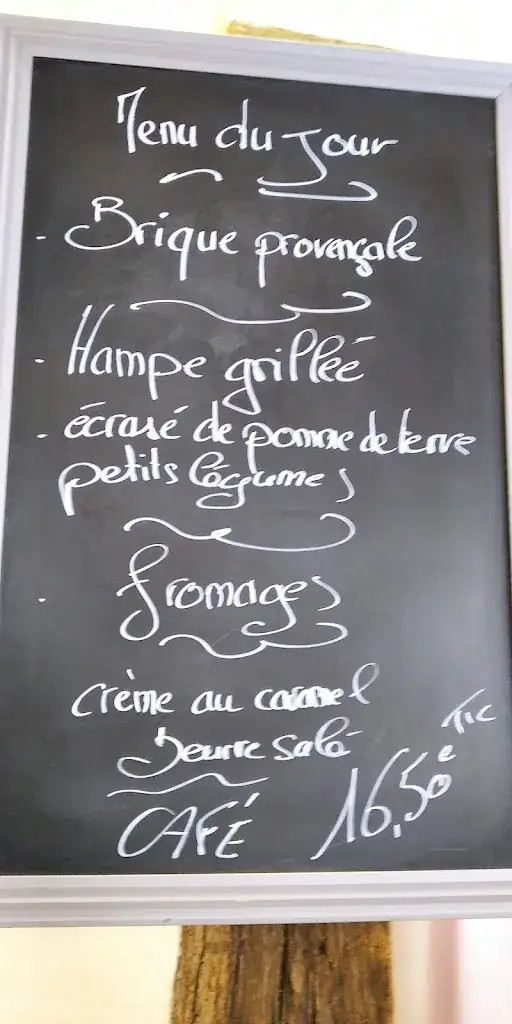 Menu du Jour
- Brique provençale
- Hampe grillée
- écrasé de pomme de terre
petits légumes
- fromages
crème au caramel
Beurre salé
CAFÉ 16,50€ TTC